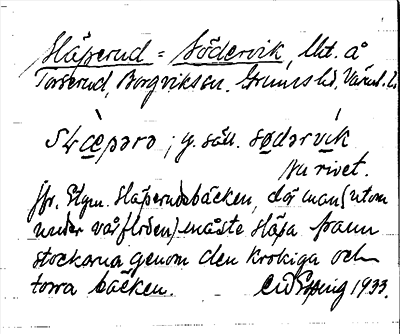 Släperud = Södervik, lht. å
Torserud, Borgvikssn. Grums hd. Värml. l.
slæ̀pərə; y. säll. sø̀dərvík
Nu rivet.
Jfr. Elgn. Släperudsbäcken, där man (utom
under vårfloden) måste släpa fram
stockarna genom den krokiga och
torra bäcken. 1933.